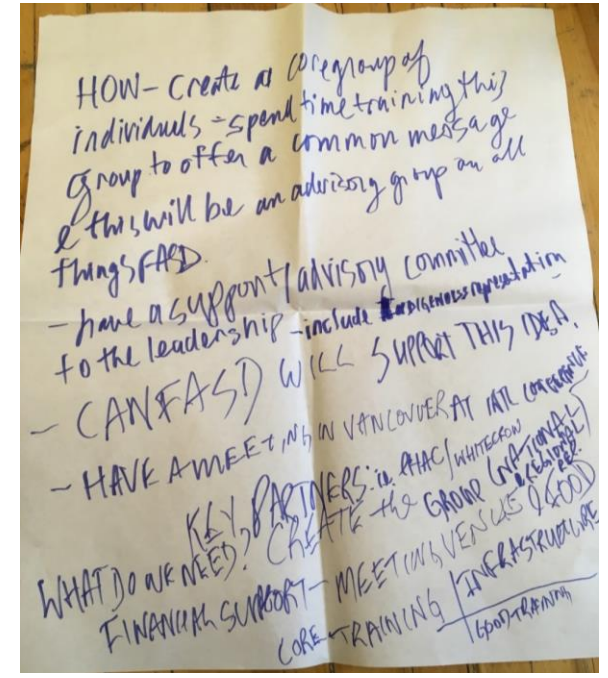 HOW - Create a coregroup of
individuals - spend time training this
group to offer a common message
& this will be an advisory group on all
things FASD.
- have a support/advisory committee
to the leadership - include INDIGENOUS representation
- CANFASD WILL SUPPORT THIS IDEA.
- HAVE A MEETING IN VANCOUVER AT INTL CONFERENCE
KEY PARTNERS: i.e. PHAC/WHITECROW
WHAT DO WE NEED? CREATE the GROUP (NATIONAL
& REGIONAL
FINANCIAL SUPPORT - MEETING VENUE & FOOD
CORE TRAINING / INFRASTRUCTURE